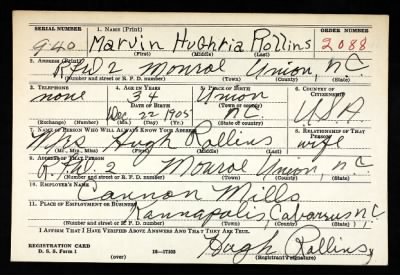 SERIAL NUMBER 1. NAME (Print) ORDER NUMBER
940 Marvin Hughria Rollins 2088
(First) (Middle) (Last)
2. ADDRESS (Print)
R.F.D 2 Monroe Union, N.C.
(Number and street or R. F. D. number) (Town) (County) (State)
3. TELEPHONE 4. AGE IN YEARS 5. PLACE OF BIRTH 6. COUNTRY OF CITIZENSHIP
none 34 Union
DATE OF BIRTH (Town or county)
Dec 22 1905 N.C. USA
(Exchange) (Number) (Mo.) (Day) (Yr.) (State or country)
7. NAME OF PERSON WHO WILL ALWAYS KNOW YOUR ADDRESS 8. RELATIONSHIP OF THAT PERSON
Mrs Hugh Rollins wife
(Mr., Mrs., Miss) (First) (Middle) (Last)
9. ADDRESS OF THAT PERSON
R.F.D 2 Monroe Union, N.C.
(Number and street or R. F. D. number) (Town) (County) (State)
10. EMPLOYER'S NAME
Cannon Mills
11. PLACE OF EMPLOYMENT OR BUSINESS
Kannapolis, Cabarrus N.C
(Number and street or R. F. D. number) (Town) (County) (State)
I AFFIRM THAT I HAVE VERIFIED ABOVE ANSWERS AND THAT THEY ARE TRUE.
REGISTRATION CARD Hugh Rollins
D. S. S. Form 1 (over) 16—17105 (Registrant's signature)